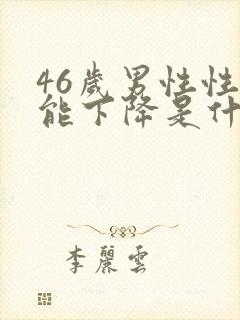 46歲男性性
能下降是什
李麗雲